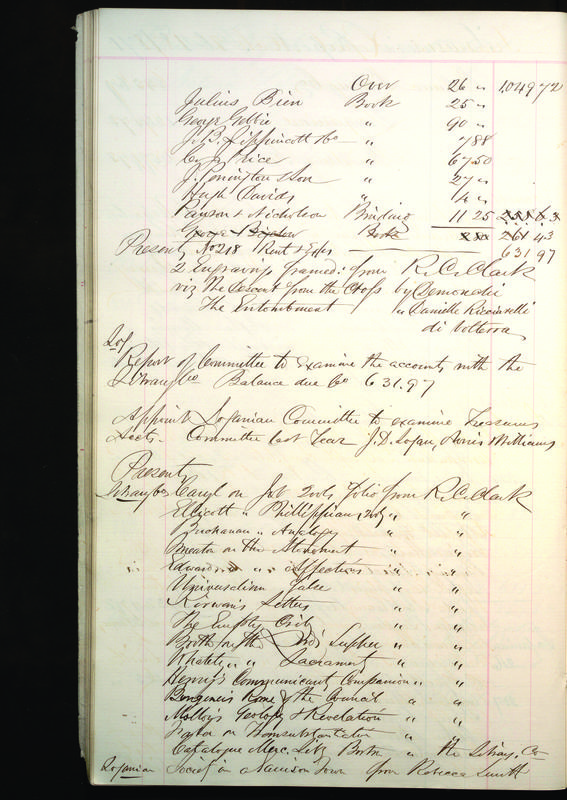 Over 26 " 1,049 72
Julius Bien Book 25 "
George Gebbie " 90 "
J. B. Lippincott & Co " 7 88
C. J. Price " 67 50
J. Penington & Son " 27 "
Hugh Davids "
Pawson & Nicholson Binding 11 25
Book 261 43
Present, No 218 Rent & 631 97
2 Engravings framed: from R. C. Clark
viz The Descent from the Cross by
The Entombment " Danielle Ricciarelli
di Volterra
Log
Report of Committee to Examine the accounts with the
Library Co Balance due Co 631.97
Appoint Loganian Committee to examine Treasurers
Accts. Committee last Year J. D. Logan, & Williams
Present,
Library Co Caryl on Job 2 vols, folio from R. C. Clark
Ellicott " Phillippians, " "
Buchanan " Analogy " "
on the Atonement " "
Edwards " " Affections " "
Universalism False " "
Kirwan's Letters " "
The Empty Crib " "
Booth on the Lord's Supper " "
Whately " " Sacraments " "
Henry's Communicant Companion " "
Bungener's Rome & the Council " "
Molloy's Geology & Revelation " "
on Transubstantiation " "
Catalogue Merc. Liby Boston " the Library Co
Loganian Society in America Town from Rebecca Smith